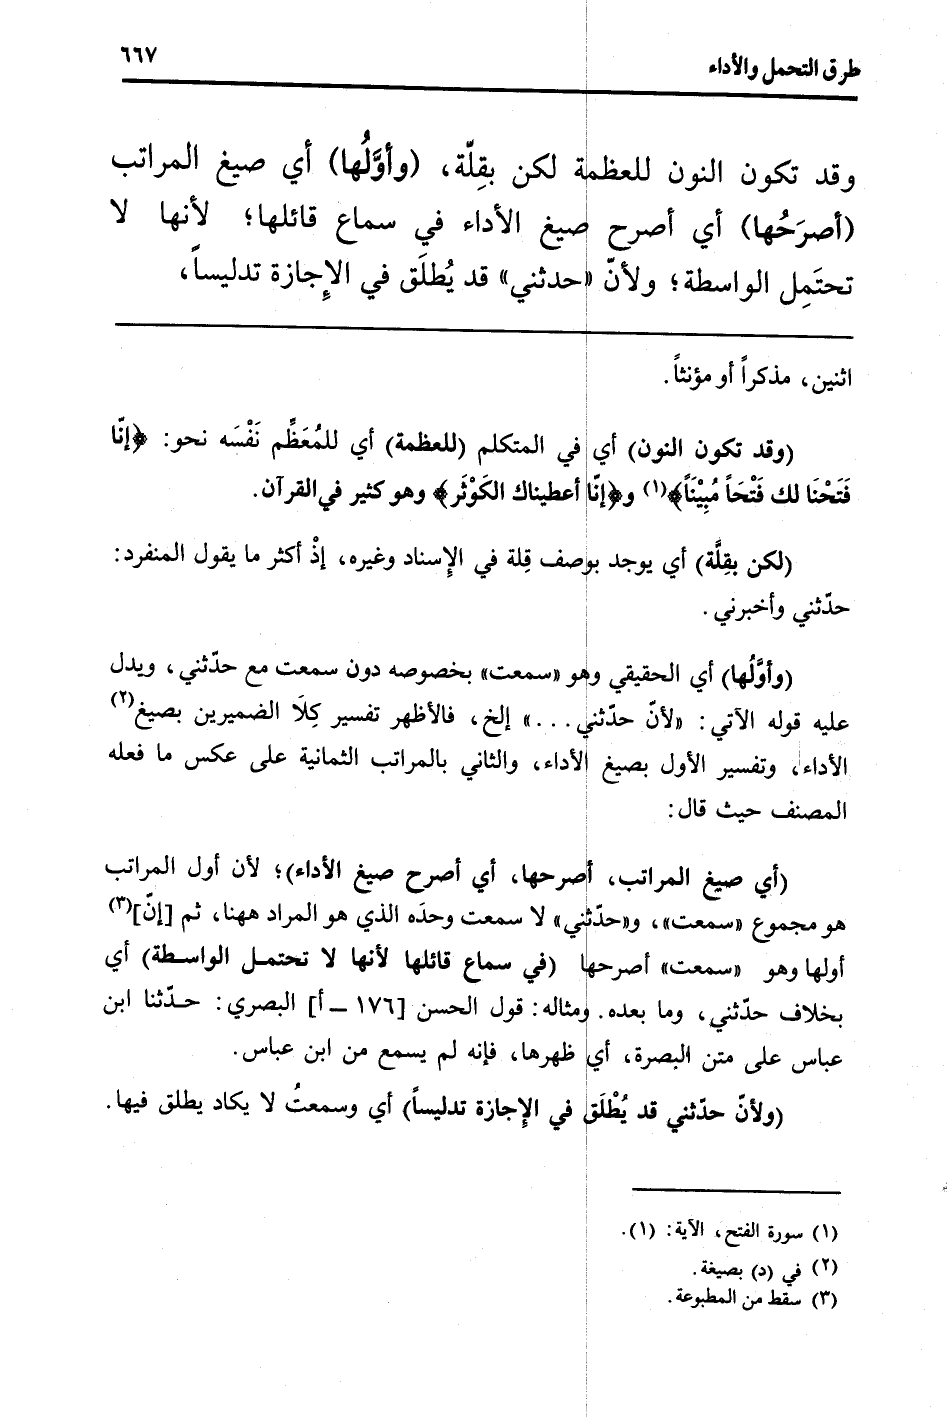 طرق التحمل والأداء
٦٦٧
وقد تكون النون للعظمة لكن بقِلّة، (وأوَّلُها) أي صيغ المراتب
(أصرَحُها) أي أصرح صيغ الأداء في سماع قائلها؛ لأنها لا
تحتَمِل الواسطة؛ ولأنّ «حدثني» قد يُطلَق في الإِجازة تدليساً،
اثنين، مذكراً أو مؤنثاً.
(وقد تكون النون) أي في المتكلم (للعظمة) أي للمُعَظِّم نَفْسَه نحو: ﴿إنَّا
فَتَحْنَا لك فَتْحَاً مُبِيْنَاً﴾(١) و﴿إنَّا أعطيناك الكَوْثَر﴾ وهو كثير في القرآن.
(لكن بقِلَّة) أي يوجد بوصف قِلة في الإِسناد وغيره، إذْ أكثر ما يقول المنفرد:
حدّثني وأخبرني.
(وأوَّلُها) أي الحقيقي وهو «سمعت» بخصوصه دون سمعت مع حدّثني، ويدل
عليه قوله الآتي: «لأنّ حدّثني...» إلخ، فالأظهر تفسير كِلَا الضميرين بصيغ(٢)
الأداء، وتفسير الأول بصيغ الأداء، والثاني بالمراتب الثمانية على عكس ما فعله
المصنف حيث قال:
(أي صيغ المراتب، أصرحها، أي أصرح صيغ الأداء)؛ لأن أول المراتب
هو مجموع «سمعت»، و«حدّثني» لا سمعت وحدَه الذي هو المراد ههنا، ثم [إنّ](٣)
أولها وهو «سمعت» أصرحها (في سماع قائلها لأنها لا تحتمل الواسطة) أي
بخلاف حدّثني، وما بعده. ومثاله: قول الحسن [١٧٦ ــ أ] البصري: حدّثنا ابن
عباس على متن البصرة، أي ظهرها، فإنه لم يسمع من ابن عباس.
(ولأنّ حدّثني قد يُطْلَق في الإِجازة تدليساً) أي وسمعتُ لا يكاد يطلق فيها.
(١) سورة الفتح، الآية: (١).
(٢) في (د) بصيغة.
(٣) سقط من المطبوعة.